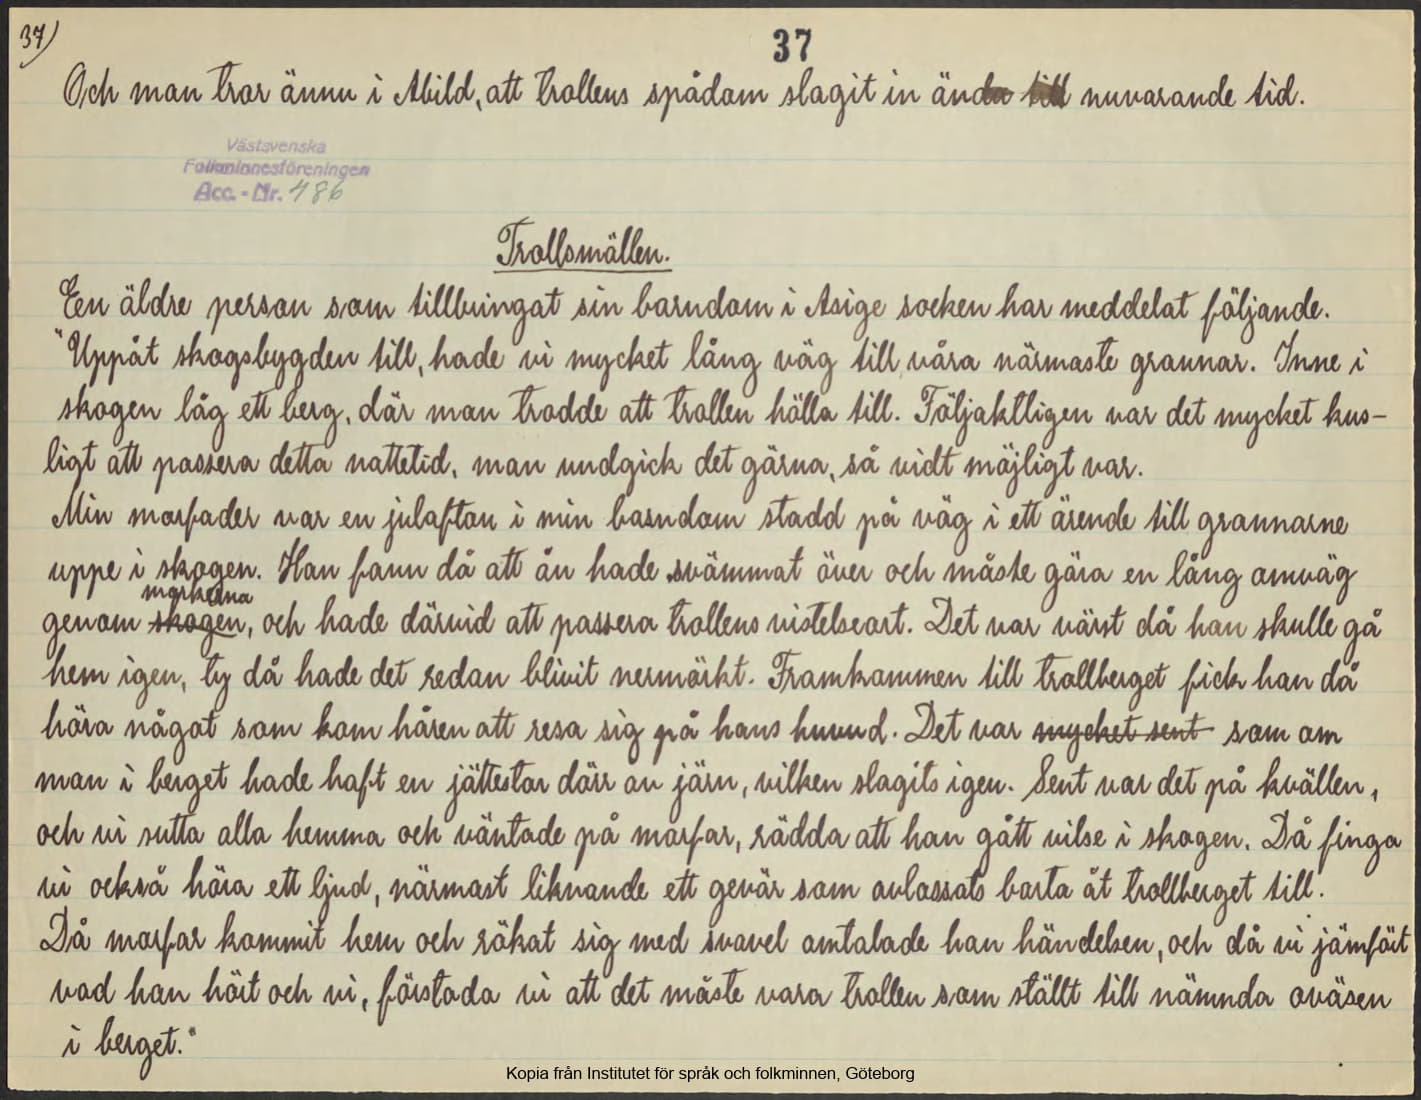 37)
37
Och man tror ännu i Abild, att trollens spådom slagit in ända till nuvarande tid.
Västsvenska
Folkminnesföreningen
Acc. - Nr. 486
Trollsmällen.
Een äldre person som tillbringat sin barndom i Asige socken har meddelat följande.
"Uppåt skogsbygden till, hade vi mycket lång väg till våra närmaste grannar. Inne i
skogen låg ett berg, där man trodde att trollen hölla till. Följaktligen var det mycket kus-
ligt att passera detta nattetid, man undgick det gärna, så vidt möjligt var.
Min morfader var en julafton i min barndom stadd på väg i ett ärende till grannarne
uppe i skogen. Han fann då att ån hade svämmat över och måste göra en lång omväg
markerna
genom skogen, och hade därvid att passera trollens vistelseort. Det var värst då han skulle gå
hem igen, ty då hade det redan blivit nermörkt. Framkommen till trollberget fick han då
höra något som kom håren att resa sig på hans huvud. Det var mycket sent som om
man i berget hade haft en jättestor dörr av järn, vilken slagits igen. Sent var det på kvällen,
och vi sutta alla hemma och väntade på morfar, rädda att han gått vilse i skogen. Då finga
vi också höra ett ljud, närmast liknande ett gevär som avlossats borta åt trollberget till.
Då morfar kommit hem och rökat sig med svavel omtalade han händelsen, och då vi jämfört
vad han hört och vi, förstodo vi att det måste vara trollen som ställt till nämnda oväsen
i berget."
Kopia från Institutet för språk och folkminnen, Göteborg